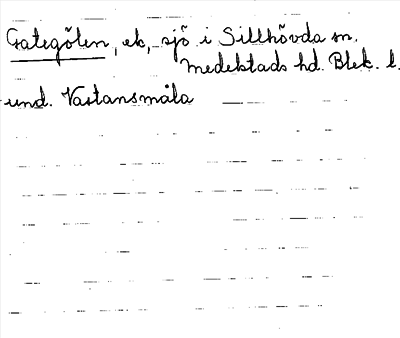 Gategölen, ek, sjö i Sillhövda sn.
Medelstads hd. Blek. l.
und. Västansmåla